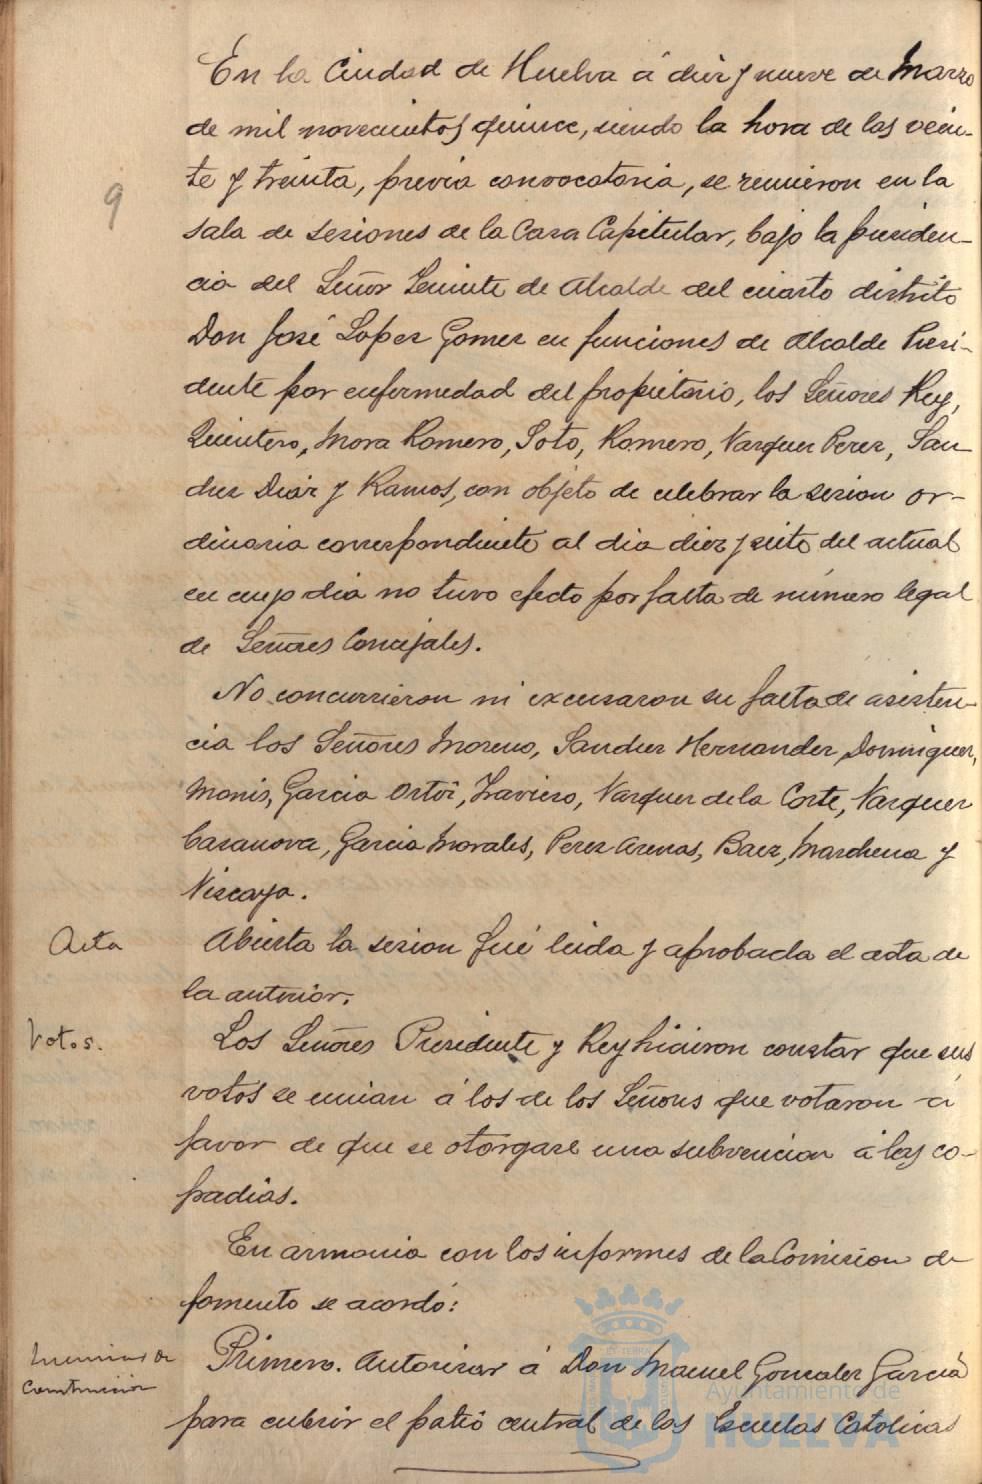 En la Ciudad de Huelva á diez y nueve de Marzo
de mil novecientos quince, siendo la hora de las vein-
te y treinta, previa convocatoria, se reunieron en la
9
sala de sesiones de la Casa Capitular, bajo la presiden-
cia del Señor Teniente de Alcalde del cuarto distrito
Don José Lopez Gomez en funciones de Alcalde Presi-
dente por enfermedad del propietario, los Señores Rey,
Quintero, Mora Romero, Soto, Romero, Vazquez Perez, San-
chez Diaz y Ramos, con objeto de celebrar la sesion or-
dinaria correspondiente al dia diez y siete del actual
en cuyo dia no tuvo efecto por falta de número legal
de Señores Concejales.
No concurrieron ni excusaron su falta de asisten-
cia los Señores Moreno, Sanchez Hernandez, Dominguez,
Monis, Garcia Ortiz, Traviero, Vazquez de la Corte, Vazquez
Casanova, Garcia Morales, Perez Arenas, Baez, Marchena y
Viscaya.
Acta
Abierta la sesion fué leida y aprobada el acta de
la anterior.
Votos.
Los Señores Presidente y Rey hicieron constar que sus
votos se unian á los de los Señores que votaron á
favor de que se otorgase una subvencion á las co-
fradias.
En armonia con los informes de la Comision de
fomento se acordó:
Licencias de
construccion
Primero. Autorizar á Don Manuel Gonzalez Garcia
para cubrir el patio central de las Escuelas Catolicas
Ayuntamiento de
HUELVA